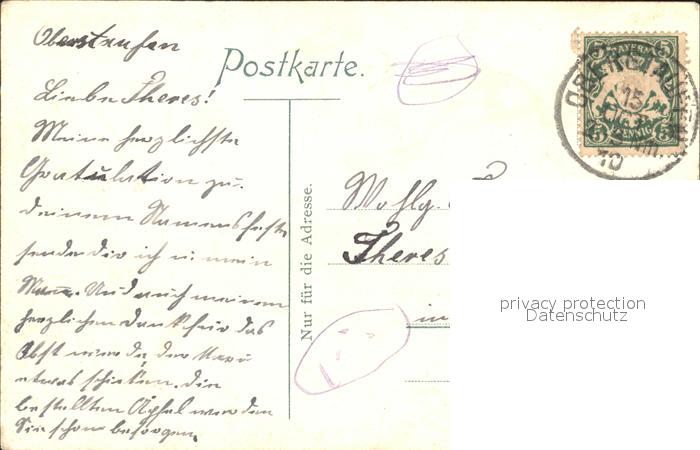 Oberstaufen
Postkarte.
Liebe Theres!
Meine herzlichste
Gratulation zu
deinem Namensfeste
sende dir ich u. mein
Mann. Und auch meinen
herzlichen Dank für das
Obst
etwas schicken. die
bestellten Äpfel werden
Sie schon besorgen.
Nur für die Adresse.
Wohlg.
Theres
in
BAYERN
5 5
5 5
PFENNIG
OBERSTAUFEN
15
OCT
10
privacy protection
Datenschutz